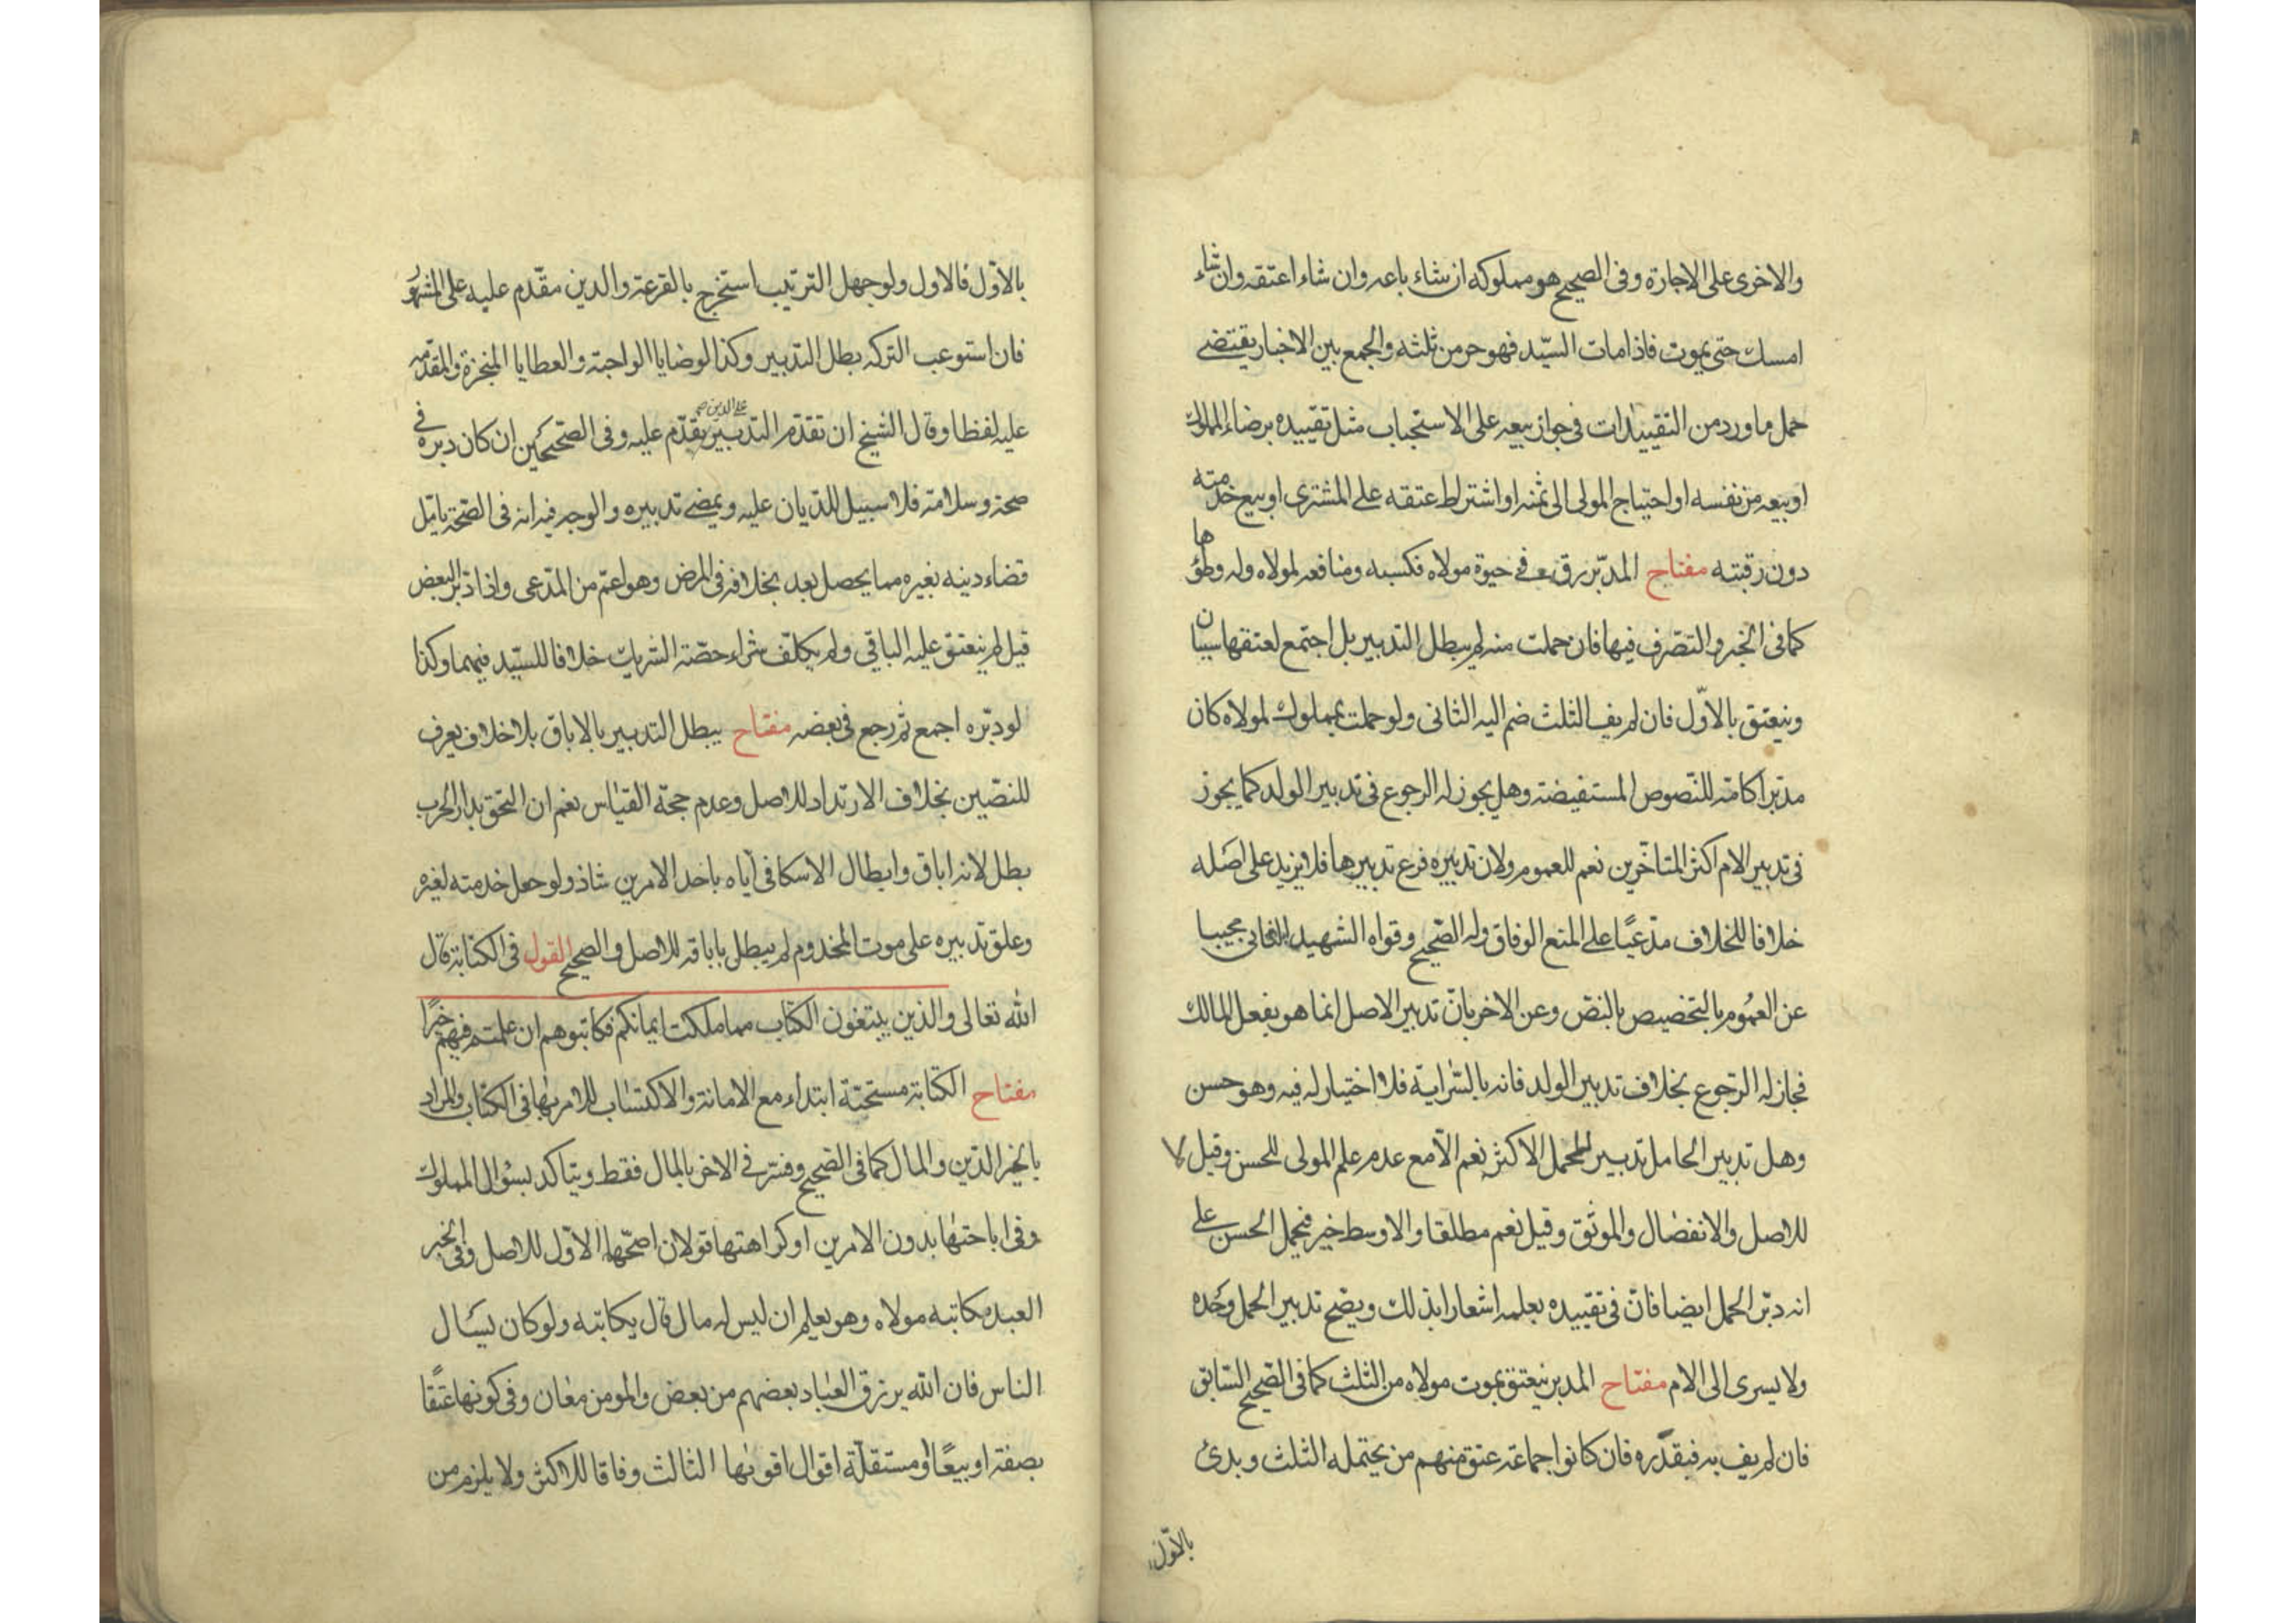 والاخرى على الاجازة وفى الصحيح هو مملوكه ان شاء باعه وان شاء اعتقه وان شاء
امسك حتى يموت فاذا مات السيّد فهو حر من ثلثه والجمع بين الاخبار يقتضى
حمل ما ورد من التقييدات فى جواز بيعه على الاستحباب مثل تقييده برضاء المملوك
او بيعه من نفسه او احتياج المولى الى ثمنه او اشتراط عتقه على المشترى او بيع خدمته
دون رقبته مفتاح المدبّر رق فى حيوة مولاه فكسبه ومنافعه لمولاه وله وطؤها
كما فى الخبر والتصّرف فيها فان حملت منه لم يبطل التدبير بل اجتمع لعتقها سببان
وينعتق بالاوّل فان لم يف الثلث ضم اليه الثانى ولو حملت بمملوك لمولاه كان
مدبّرا كامّه للنّصوص المستفيضة وهل يجوز له الرجوع فى تدبير الولد كما يجوز
فى تدبير الام اكثر المتاخّرين نعم للعموم ولان تدبيره فرع تدبيرها فلا يزيد على اصله
خلافا للخلاف مدّعيًا على المنع الوفاق وله الصّحيح وقواه الشهيد الثانى مجيبا
عن العمُوم بالتخصيص بالنصّ وعن الاخر بانّ تدبير الاصل انما هو بفعل المالك
فجاز له الرّجوع بخلاف تدبير الولد فانه بالسّراية فلا اختيار له فيه وهو حسن
وهل تدبير الحامل تدبير للحمل الاكثر نعم الّا مع عدم علم المولى للحسن وقيل لا
للاصل والانفصال والموثّق وقيل نعم مطلقا والاوسط خير فيحمل الحسن على
انه دبّر الحمل ايضا فانّ فى تقييده بعلمه اشعارا بذلك ويصّح تدبير الحمل وحْده
ولا يسرى الى الام مفتاح المدبر ينعتق بموت مولاه من الثلث كما فى الصّحيح السّابق
فان لم يف به فبقدّره فان كانوا جماعة عتق منهم من يحتمله الثلث وبدئ
بالاوّل
بالاوّل فالاول ولو جهل الترتيب استخرج بالقرعة والدين مقّدم عليه على المشهور
فان استوعب التركه بطل التدبير وكذا الوصايا الواجبة والعطايا المنجزة والمقدّمه
عليه لفظا وقال الشيخ ان تقدّم التدبير على الدين يقدّم عليه وفى الصّحيحين ان كان دبره فى
صحة وسلامة فلا سبيل للدّيان عليه ويمضى تدبيره والوجه فيه انه فى الصّحة يامل
قضاء دينه بغيره مما يحصل بعد بخلافه فى المرض وهو اعمّ من المدّعى واذا دّبر البعض
قيل لم ينعتق عليه الباقى ولم يكلّف شراء حصّة الشريك خلافا للسيّد فيهما وكذا
لو دبّره اجمع ثم رجع فى بعضه مفتاح يبطل التدبير بالاباق بلا خلاف يعرف
للنصّين بخلاف الارتداد للاصل وعدم حجّة القياس نعم ان التحق بدار الحرب
بطل لانه اباق وابطال الاسكافى اياه باحد الامرين شاذ ولو جعل خدمته لغيره
وعلق تدبيره على موت المخدوم لم يبطل باباقه للاصل والصحيح القول فى الكتابة قال
الله تعالى والذين يبتغون الكتاب مما ملكت ايمانكم فكاتبوهم ان علمتم فيهم خيرًا
مفتاح الكتابة مستحبّة ابتداء مع الامانة والاكتساب للامر بها فى الكتاب والمراد
بالخير الدّين والمال كما فى الصّحيح وفسّر فى الاخر بالمال فقط ويتاكد بسؤال المملوك
وفى اباحتها بدون الامرين او كراهتها قولان اصحّها الاوّل للاصل وفى الخبر
العبد مكاتبه مولاه وهو يعلم ان ليس له مال قال يكاتبه ولو كان يسَال
الناس فان الله يرزق العباد بعضهم من بعض والمومن معان وفى كونها عتقًا
بصفة او بيعًا او مستقلّة اقوال اقويها الثالث وفاقا للاكثر ولا يلزم من